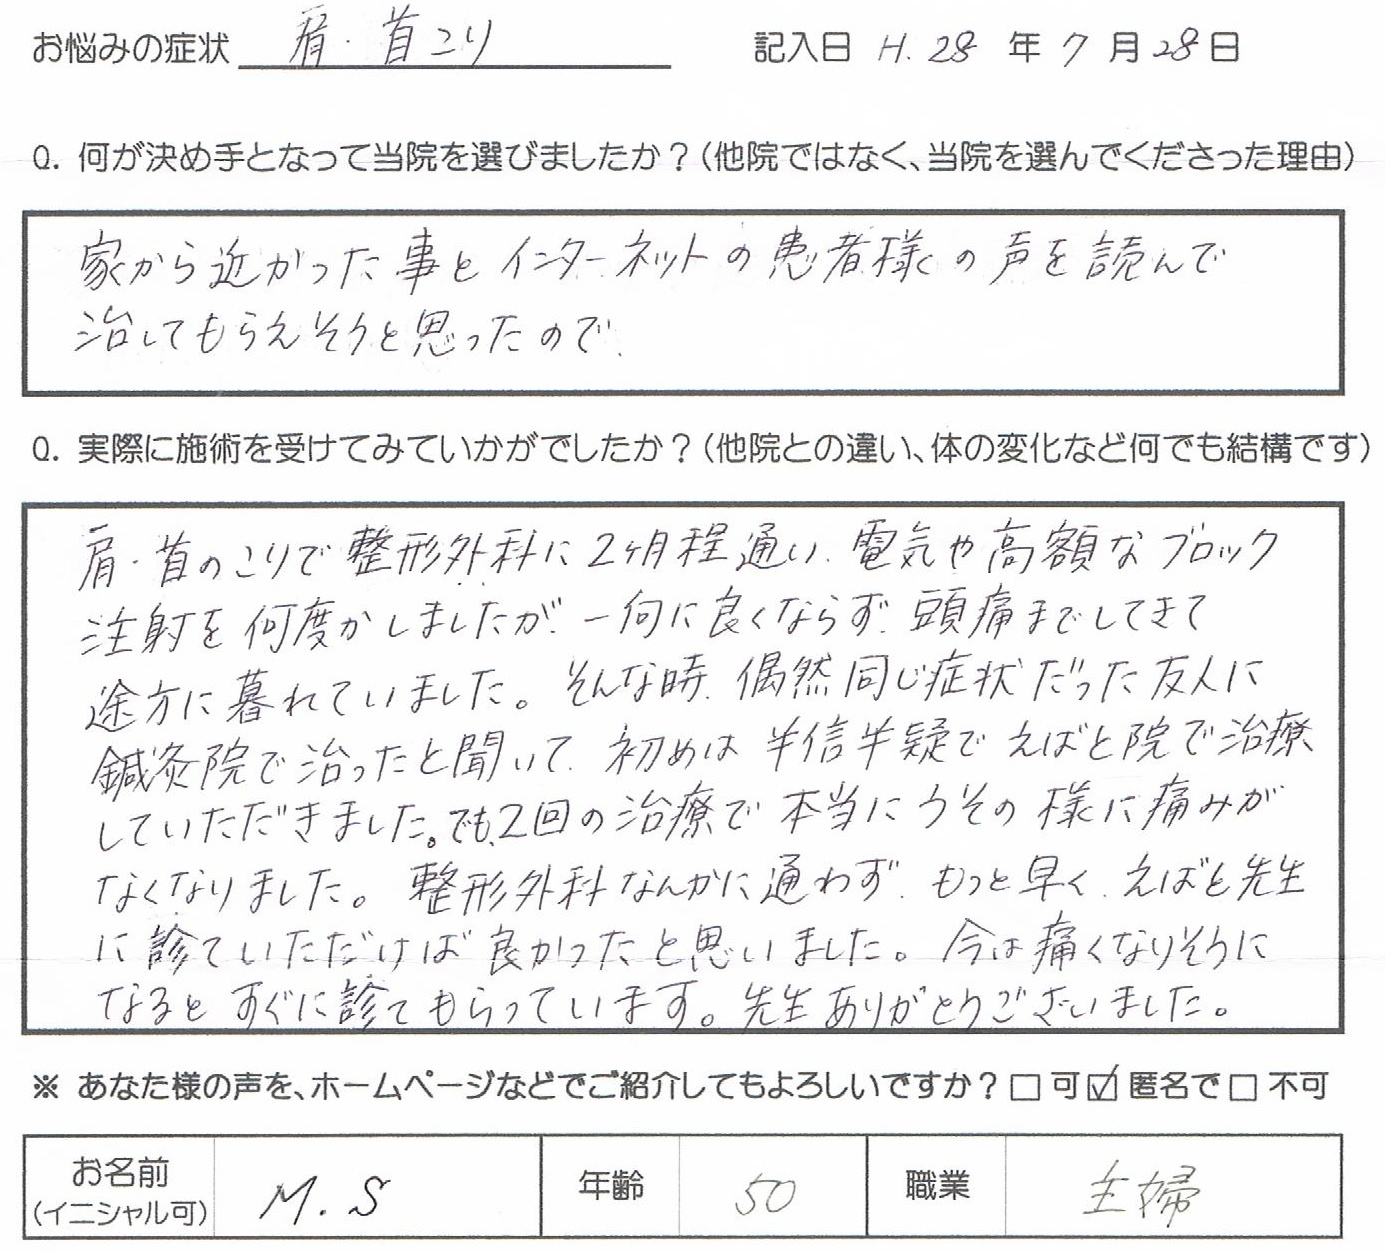 お悩みの症状 肩・首こり 記入日 H.28 年 7 月 28 日
Q. 何が決め手となって当院を選びましたか？(他院ではなく、当院を選んでくださった理由)
家から近かった事とインターネットの患者様の声を読んで
治してもらえそうと思ったので、
Q. 実際に施術を受けてみていかがでしたか？(他院との違い、体の変化など何でも結構です)
肩・首のこりで整形外科に2ヶ月程通い、電気や高額なブロック
注射を何度かしましたが、一向に良くならず、頭痛までしてきて
途方に暮れていました。そんな時、偶然同じ症状だった友人に
鍼灸院で治ったと聞いて、初めは半信半疑でえばと院で治療
していただきました。でも、2回の治療で本当にうその様に痛みが
なくなりました。整形外科なんかに通わず、もっと早く、えばと先生
に診ていただければ良かったと思いました。今は痛くなりそうに
なるとすぐに診てもらっています。先生ありがとうございました。
※ あなた様の声を、ホームページなどでご紹介してもよろしいですか？□ 可 ☑ 匿名で □ 不可
お名前 M.S 年齢 50 職業 主婦
(イニシャル可)